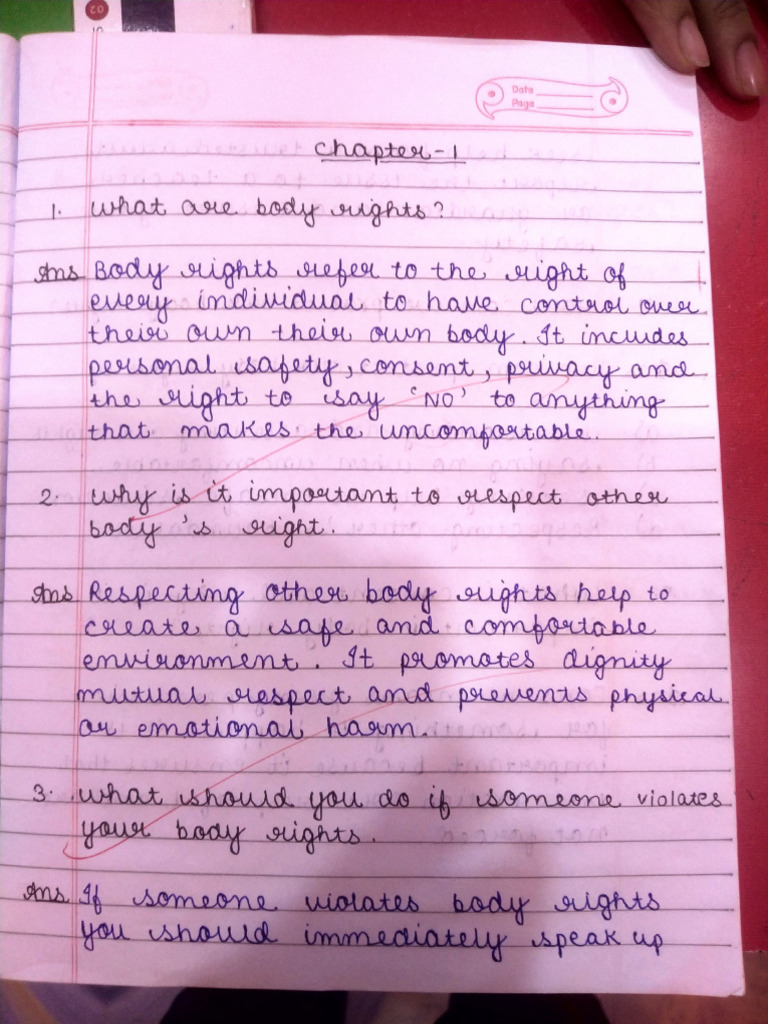 02
Date
Page
Chapter-1
1. What are body rights?
Ans Body rights refer to the right of
every individual to have control over
their own their own body. It includes
personal safety, consent, privacy and
the right to say 'NO' to anything
that makes the uncomfortable.
2. Why is it important to respect other
body's right.
Ans Respecting other body rights help to
create a safe and comfortable
environment. It promotes dignity
mutual respect and prevents physical
or emotional harm.
3. What should you do if someone violates
your body rights.
Ans If someone violates body rights
you should immediately speak up